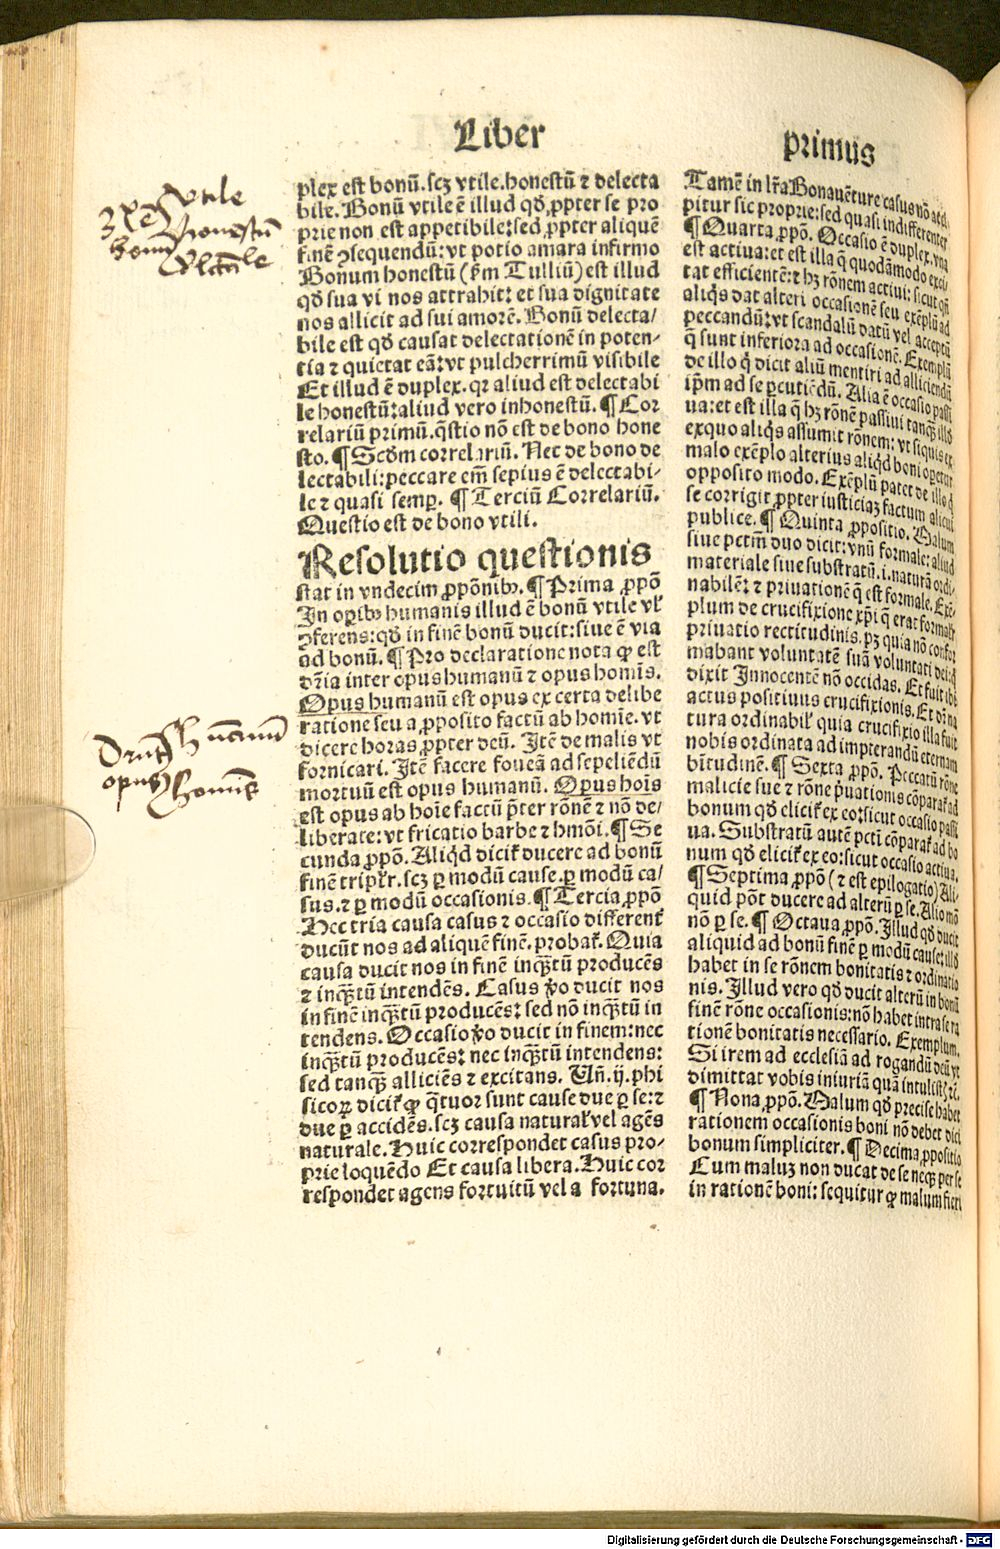 Liber
primus
Vtile
3Xex Honestū
bonū
plex est bonū.scꝫ vtile.honestū ⁊ delecta
bile. Bonū vtile ē illud qđ ꝓpter se pro
prie non est appetibile:sed ꝓpter aliquē
finē ꝯsequendū:vt potio amara infirmo
Bonum honestū (ẜm Tulliū) est illud
qđ sua vi nos attrahit: et sua dignitate
nos allicit ad sui amorē. Bonū delecta/
bile est qđ causat delectationē in poten-
tia ⁊ quietat eā:vt pulcherrimū visibile
Et illud ē duplex. qꝛ aliud est delectabi
le honestū:aliud vero inhonestū. ¶ Cor
relariū primū.q̄stio nō est de bono hone
sto. ¶ Scđm correlariū. Nec de bono de
lectabili:peccare em̄ sepius ē delectabi-
le ⁊ quasi semꝑ. ¶ Terciū Correlariū.
Questio est de bono vtili.
Resolutio questionis
stat in vndecim ꝓpōnibꝰ. ¶ Prima ꝓpō
In oꝑibꝰ humanis illud ē bonū vtile vł
ꝯferens:qđ in finē bonū ducit:siue ē via
ad bonū. ¶ Pro declaratione nota ꝙ est
dr̄ia inter opus humanū ⁊ opus homīs.
Opus humanū est opus ex certa delibe
ratione seu a ꝓposito factū ab homīe. vt
dicere horas ꝓpter deū. Itē de malis vt
fornicari. Itē facere foueā ad sepeliēdū
mortuū est opus humanū. Opus hoīs
est opus ab hoīe factū p̄ter rōnē ⁊ nō de/
liberate: vt fricatio barbe ⁊ hmōi. ¶ Se
cunda ꝓpō. Aliqđ dicit̄ ducere ad bonū
finē tripłr. scꝫ ꝑ modū cause. ꝑ modū ca/
sus. ⁊ ꝑ modū occasionis. ¶ Tercia ꝓpō
Hec tria causa casus ⁊ occasio different̄
ducūt nos ad aliquē finē. probat̄. Quia
causa ducit nos in finē inqꝫtū producēs
⁊ inqꝫtū intendēs. Casus v̄o ducit nos
in finē inqꝫtū producēs: sed nō inqꝫtū in
tendens. Occasio v̄o ducit in finem:nec
inqꝫtū producēs: nec inqꝫtū intendens:
sed tanqꝫ alliciēs ⁊ excitans. Vn̄. ij. phi
sicoꝝ dicit̄ ꝙ q̄tuor sunt cause due ꝑ se: ⁊
due ꝑ accidēs. scꝫ causa natural̄ vel agēs
naturale. Huic correspondet casus pro-
prie loquēdo Et causa libera. Huic cor
respondet agens fortuitū vel a fortuna.
opus humanū
homīs
Tamē in lr̄a Bonauēture casus nō
pitur sic proprie:sed quasi indifferenter
¶ Quarta ꝓpō. Occasio ē duplex. vna
est actiua: et est illa q̄ quodāmodo exci/
tat efficientē: ⁊ hꝫ rōnem actiui: sicut qn̄
aliqs dat alteri occasionē seu exēplū ad
peccandū:vt scandalū datū vel acceptū
q̄ sunt inferiora ad occasionē. Exemplū
de illo q̄ dicit aliū mentiri ad alliciendū
ip̄m ad se ꝑcutiēdū. Alia ē occasio passi
ua: et est illa q̄ hꝫ rōnē passiui tanqꝫ illđ
exquo aliqs assumit rōnem: vt siquis ex
malo exēplo alterius aliqđ boni oꝑetur
opposito modo. Exēplū patet de illo q̄
se corrigit ꝓpter iusticiaꝫ factum alicui
publice. ¶ Quinta ꝓpositio. Malum
siue pctm̄ duo dicit: vnū formale: aliud
materiale siue substratū. i. naturā ordi/
nabilē: ⁊ priuationē q̄ est formale. Exē-
plum de crucifixione xp̄i q̄ erat formalr̄
priuatio rectitudinis. pꝫ quia nō confor
mabant voluntatē suā voluntati dei: q̄
dixit Innocentē nō occidas. Et fuit ibi
actus positiuus crucifixionis. Et oīa na
tura ordinabil̄ quia crucifixio illa fuit
nobis ordinata ad impterandū eternam
bt̄itudinē. ¶ Sexta ꝓpō. Peccatū rōne
malicie sue ⁊ rōne p̄uationis cōparat̄ ad
bonum qđ elicit̄ ex eo:sicut occasio passi
ua. Substratū autē pcti cōparat̄ ad bo
num qđ elicit̄ ex eo: sicut occasio actiua.
¶ Septima ꝓpō (⁊ est epilogatio) Ali-
quid pōt ducere ad alterū ꝑ se. Alio mō
nō ꝑ se. ¶ Octaua ꝓpō. Illud qđ ducit
aliquid ad bonū finē ꝑ modū cause: illđ
habet in se rōnem bonitatis ⁊ ordinatio
nis. Illud vero qđ ducit alterū in bonū
finē rōne occasionis: nō habet intra se ra
tionē bonitatis necessario. Exemplum.
Si irem ad ecclesiā ad rogandū deū vt
dimittat vobis iniuriā quā intulist̄ ⁊c̄.
¶ Nona ꝓpō. Malum qđ precise habet
rationem occasionis boni nō debet dici
bonum simpliciter. ¶ Decima ꝓpositio
Cum maluꝫ non ducat de se neqꝫ per se
in rationē boni: sequitur ꝙ malum fieri
Digitalisierung gefördert durch die Deutsche Forschungsgemeinschaft - DFG